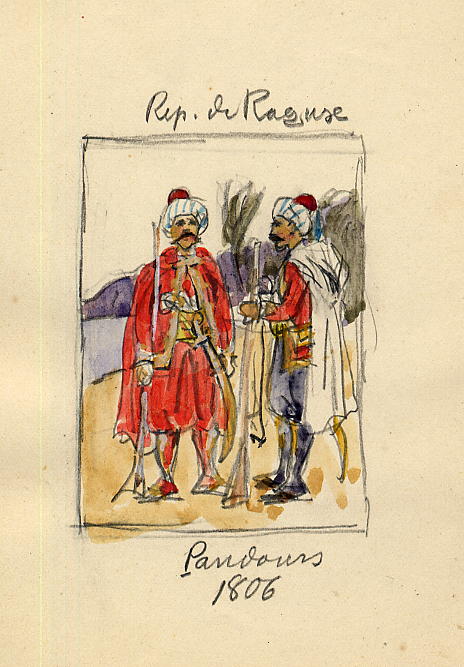 Rep. de Raguse
Pandours
1806